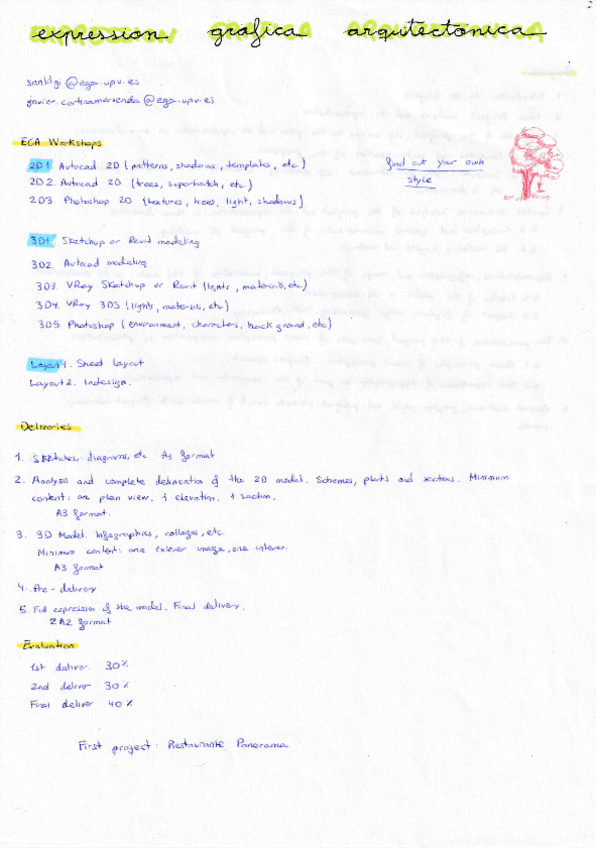 expression grafica arquitectónica
EGA Workshops
2D1. Autocad 2D (patterns, shadows, templates, etc.)
find out your own
style
2D2. Autocad 2D (trees, superhatch, etc.)
2D3. Photoshop 2D (textures, trees, light, shadows)
3D1. Sketchup or Revit modeling
3D2. Autocad modeling
3D3. VRay Sketchup or Revit (lights, materials, etc)
3D4. VRay 3DS (lights, materials, etc)
3D5. Photoshop (environment, characters, background, etc)
Layout 1. Sheet layout
Layout 2. Indesign.
Deliveries
1. Sketches, diagrams, etc A4 format
2. Analysis and complete delineation of the 2D model. Schemes, plants and sections. Minimum
content: one plan view, 1 elevation, 1 section.
A3 format.
3. 3D Model. Infographics, collages, etc.
Minimum content: one exterior image, one interior.
A3 format
4. Pre-delivery
5. Full expression of the model. Final delivery.
2A2 format
Evaluation
1st deliver. 30%
2nd deliver 30%
Final deliver 40%
First project: Restaurante Panorama